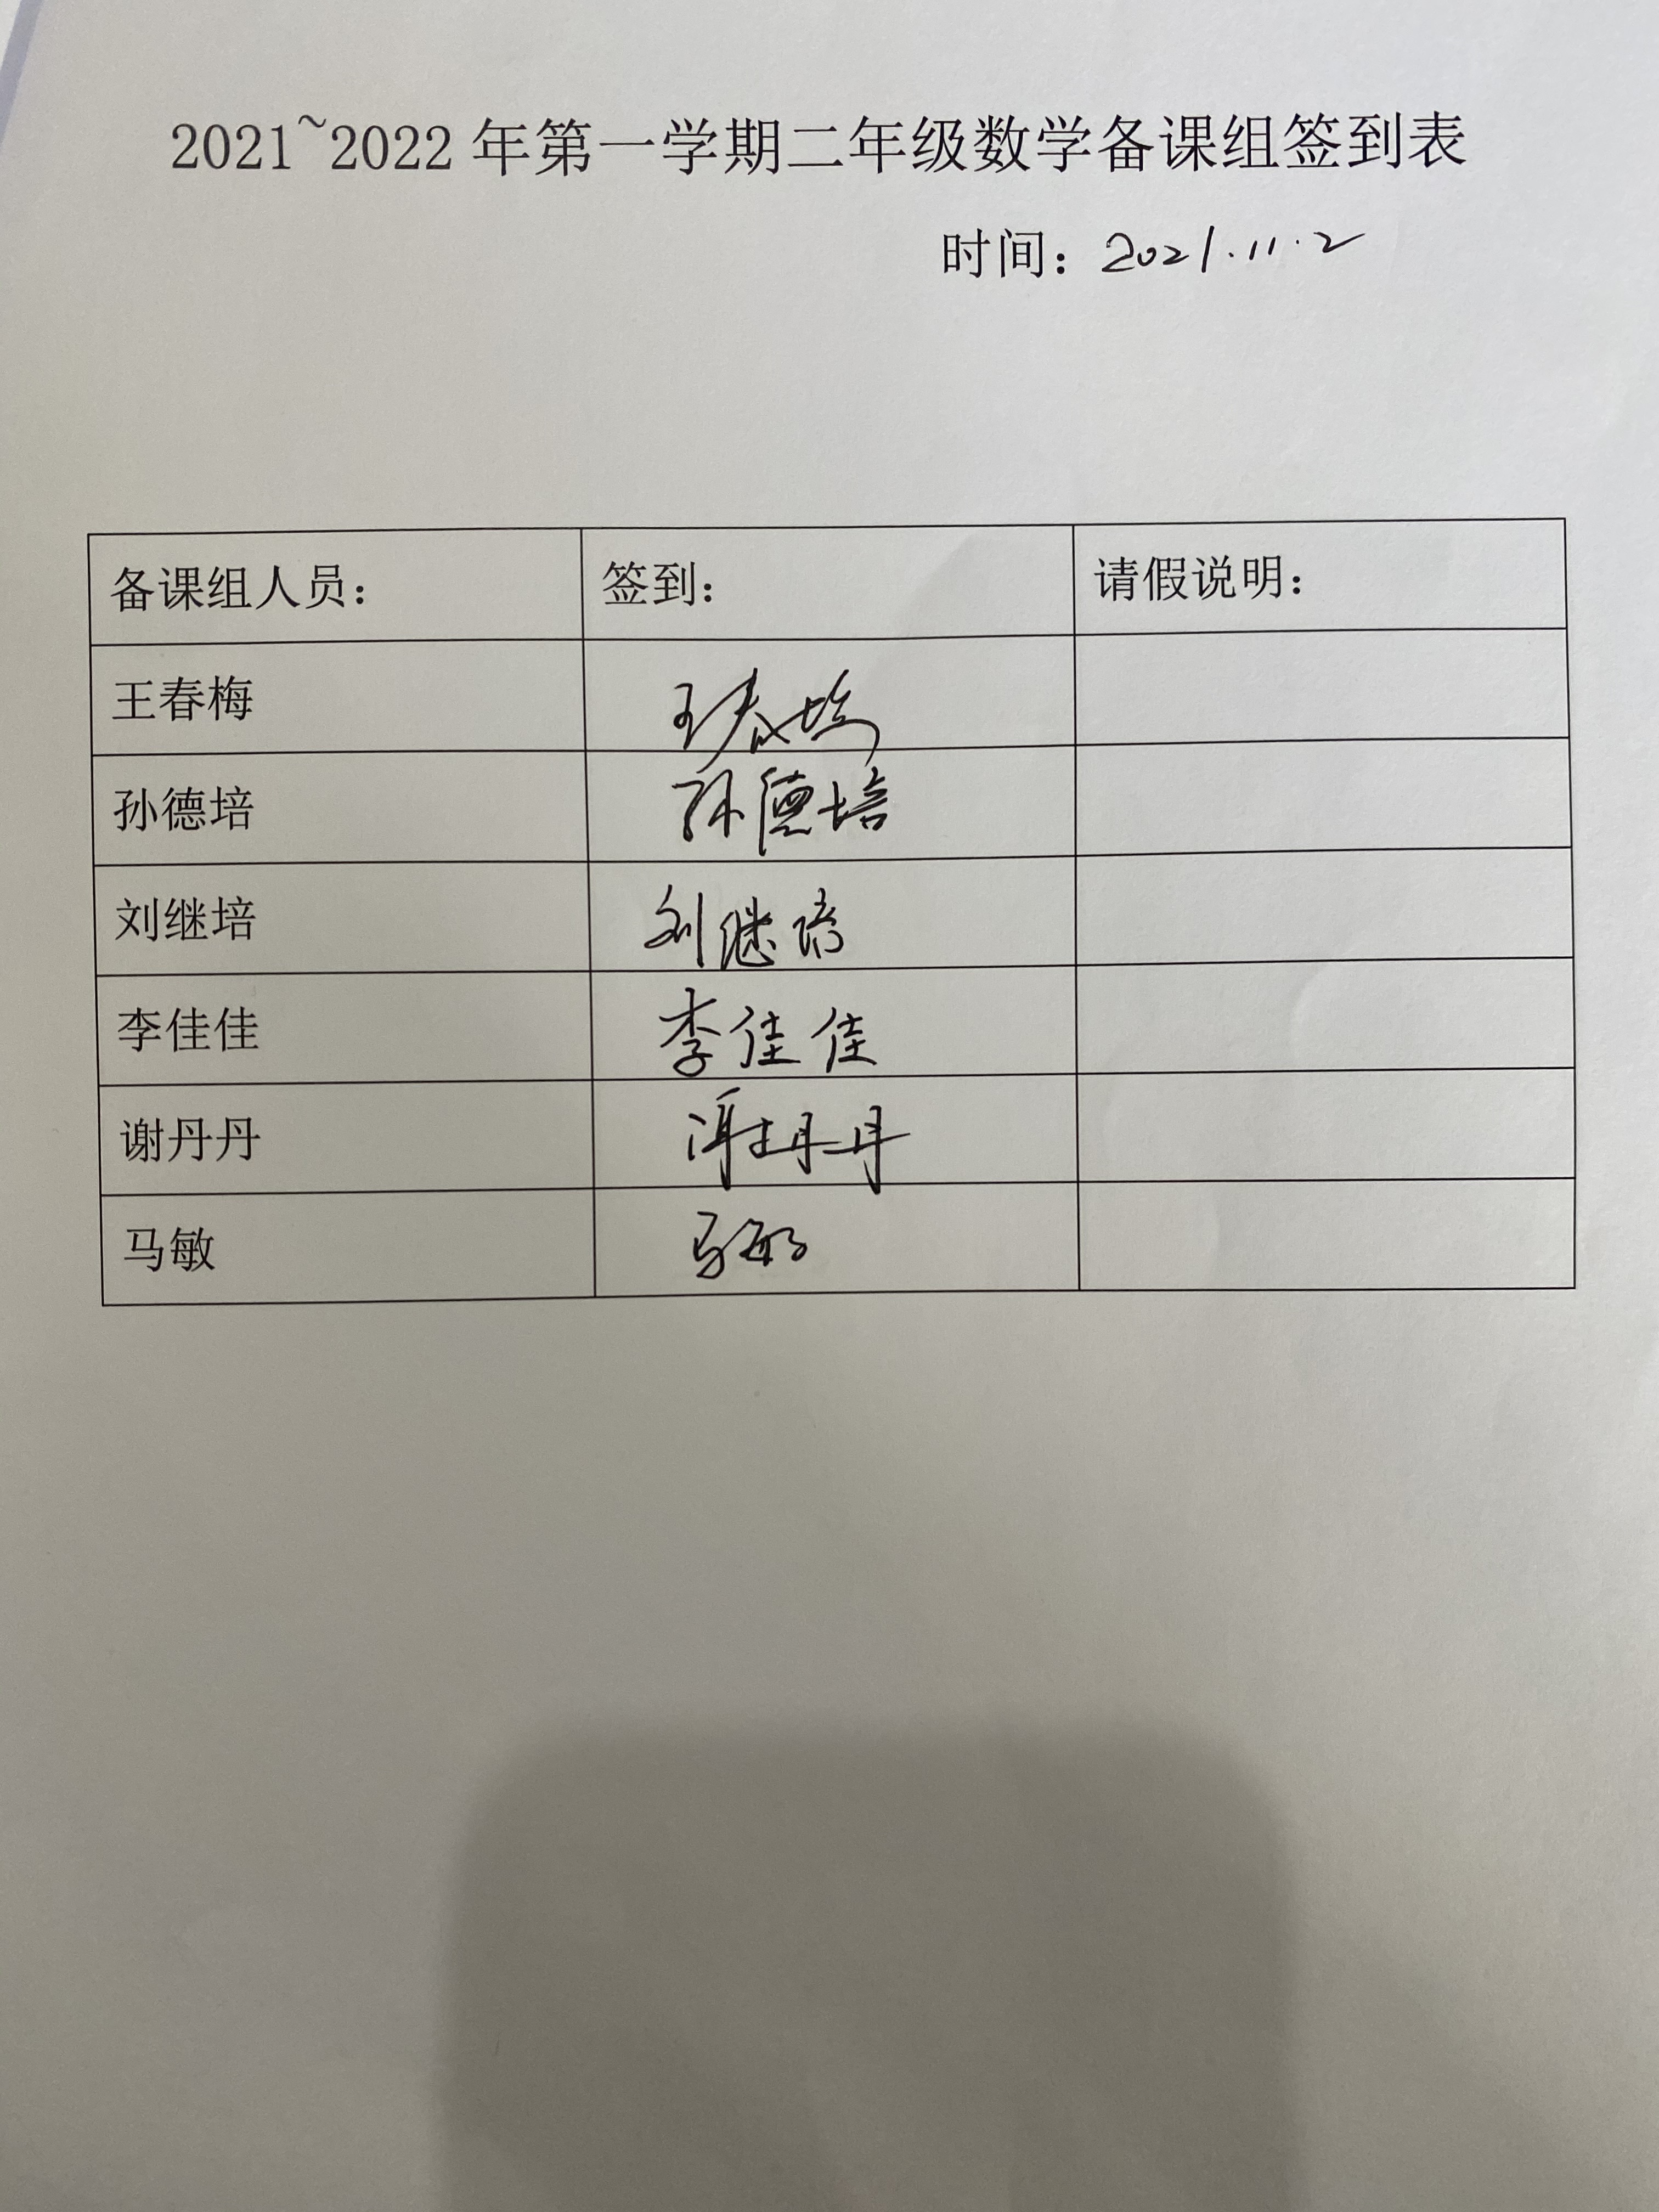 2021~2022年第一学期二年级数学备课组签到表
时间：2021.11.2
备课组人员： 签到： 请假说明：
王春梅 王春梅
孙德培 孙德培
刘继培 刘继培
李佳佳 李佳佳
谢丹丹 谢丹丹
马敏 马敏